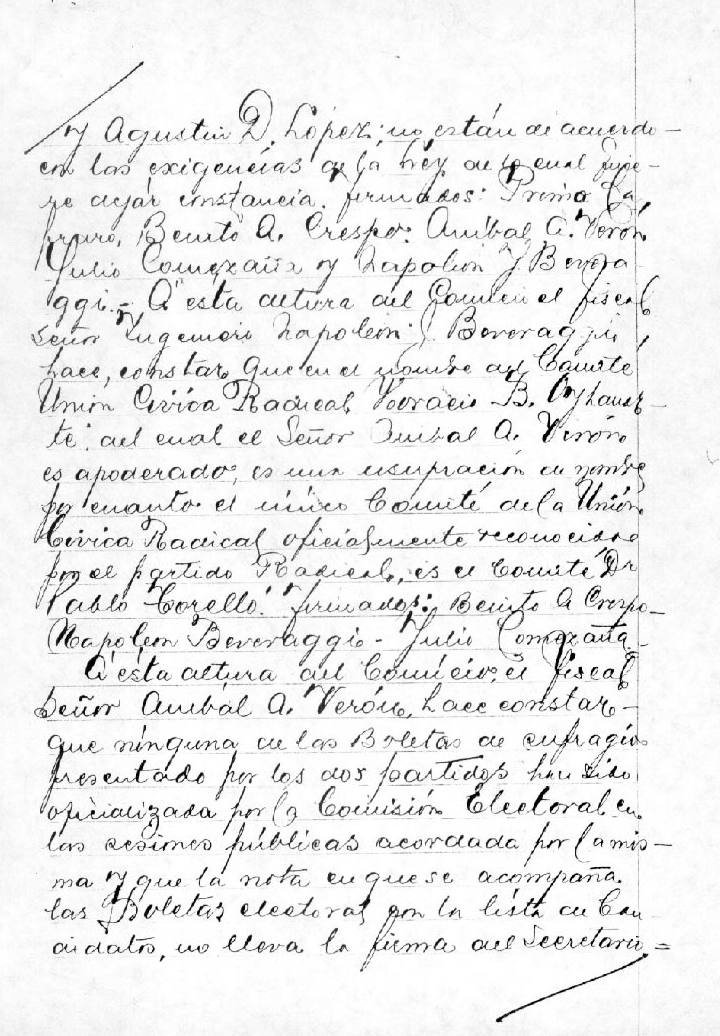 y Agustin D. López; no están de acuerdo
con las exigencias de la ley, de lo cual
dejar constancia. firmados: Primo
Benito A. Crespo. Anibal A. Verón
Julio Comezaña y Napoleon J. Bevera-
ggi.- A esta altura del Comicio el fiscal
Señor Napoleón J. Beveraggi,
hace, constar que en el nombre del Comité
Unión Civica Radical Horacio B. Oyhanar-
te. del cual el Señor Anibal A. Verón
es apoderado; es una usupración en nombre
por cuanto el único Comité de la Unión
Civica Radical oficialmente reconocido
por el partido Radical, es el Comité Dr
Pablo Torello." firmados: Benito A Crespo-
Napoleon Beveraggi - Julio Comezaña-
A ésta altura del Comicio; el fiscal
Señor Anibál A. Verón, hace constar-
que ninguna de las Boletas de sufragios
presentado por los dos partidos han sido
oficializada por la Comisión Electoral en
las sesiones públicas acordada por la mis-
ma y que la nota en que se acompaña.
las Boletas electoral con la lista de Can-
didatos, no lleva la firma del Secretario=